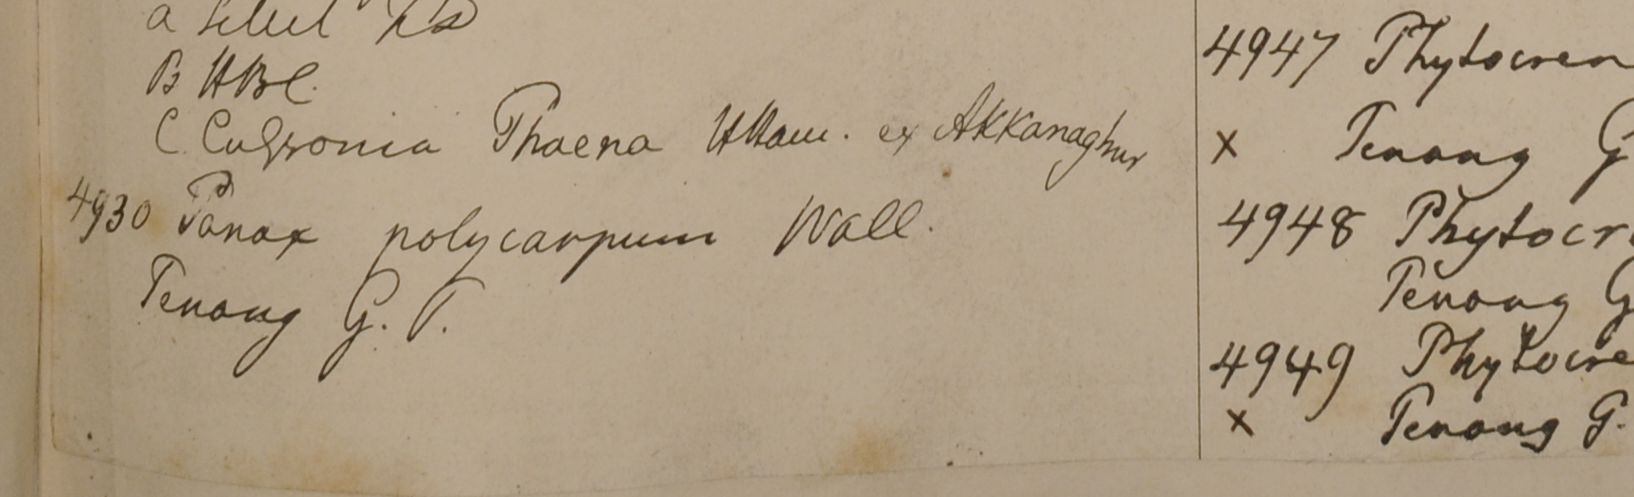 B HBC.
C Cussonia Thaena HHam. ex Akkanaghur
4930 Panax polycarpum Wall.
Penang G. P.
4947 Phytocren
x Penang G
4948 Phytocr
Penang G
4949 Phytocre
x Penang G.